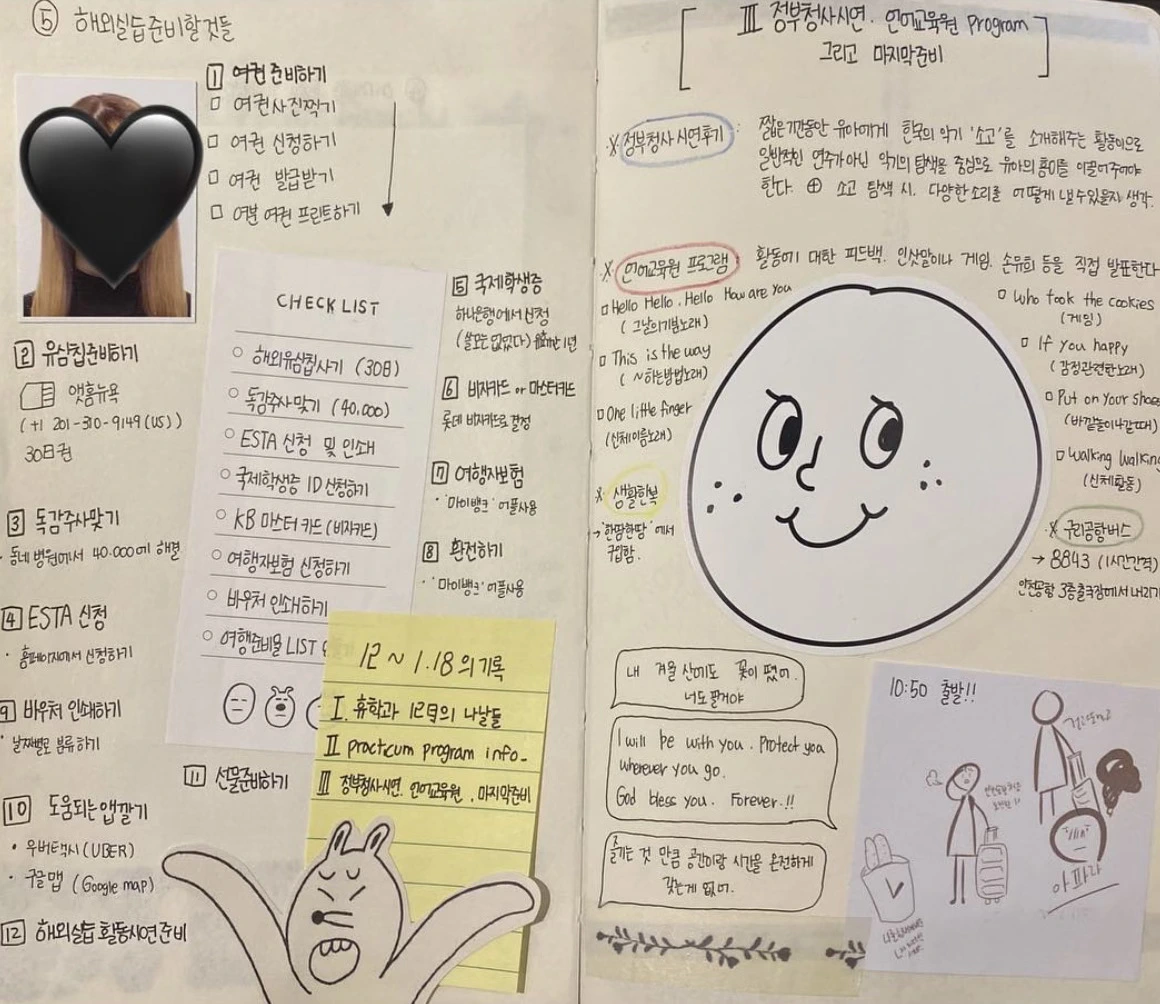 ⑤ 해외실습준비할것들
1 여권준비하기
□ 여권사진찍기
□ 여권 신청하기
□ 여권 발급받기
□ 여분 여권 프린트하기
2 유심칩준비하기
앳홈뉴욕
(+1 201-310-9149 (US))
30일권
3 독감주사맞기
· 동네병원에서 40.000에 해결
4 ESTA 신청
· 홈페이지에서 신청하기
9 바우처 인쇄하기
· 날짜별로 분류하기
10 도움되는 앱깔기
• 우버택시 (UBER)
• 구글맵 (Google map)
12 해외실습 활동시연 준비
CHECK LIST
○ 해외유심칩사기 (30日)
○ 독감주사맞기 (40,000)
○ ESTA 신청 및 인쇄
○ 국제학생증 ID 신청하기
○ KB 마스터카드 (비자카드)
○ 여행자보험 신청하기
○ 바우처 인쇄하기
○ 여행준비물 LIST
5 국제학생증
하나은행에서 신청
(쓸모는 없었다) 유효기간 1년
6 비자카드 or 마스터카드
롯데 비자카드로 결정
7 여행자보험
· '마이뱅크' 어플사용
8 환전하기
· '마이뱅크' 어플사용
11 선물준비하기
12 ~ 1.18 의 기록
I. 휴학과 12월의 나날들
II practicum program info.
III 정부청사시연. 언어교육원, 마지막준비
III 정부청사시연. 언어교육원 Program
그리고 마지막준비
※ 정부청사 시연후기 : 짧은기간동안 유아에게 한국의 악기 '소고'를 소개해주는 활동이므로
일반적인 연주가 아닌 악기의 탐색을 중심으로 유아의 흥미를 이끌어주어야
한다. ⊕ 소고 탐색 시. 다양한 소리를 어떻게 낼 수 있을지 생각.
※ 언어교육원 프로그램 활동에 대한 피드백. 인삿말이나 게임. 손유희 등을 직접 발표한다
□ Hello Hello. Hello How are you
(그날의기분노래)
□ This is the way
(~하는방법노래)
□ One little finger
(신체이름노래)
□ Who took the cookies
(게임)
□ If you happy
(감정관련한노래)
□ Put on your shoes
(바깥놀이나갈때)
□ Walking Walking
(신체활동)
※ 생활한복
→ '한땀한땀' 에서
구입함.
※ 구리공항버스
→ 8843 (1시간간격)
인천공항 3층출국장에서 내리기
내 겨울 산에도 꽃이 폈어.
너도 필거야
I will be with you. Protect you
wherever you go.
God bless you. Forever.!!
즐기는 것 만큼 공간이랑 시간을 온전하게
갖는게 없어.
10:50 출발!!
아파라